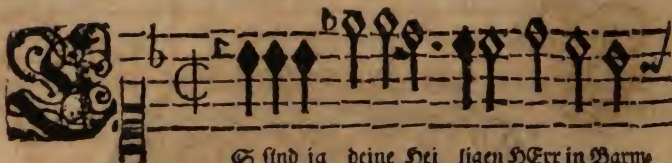 S sind ja deine Hei ligen HErr in Barm⸗